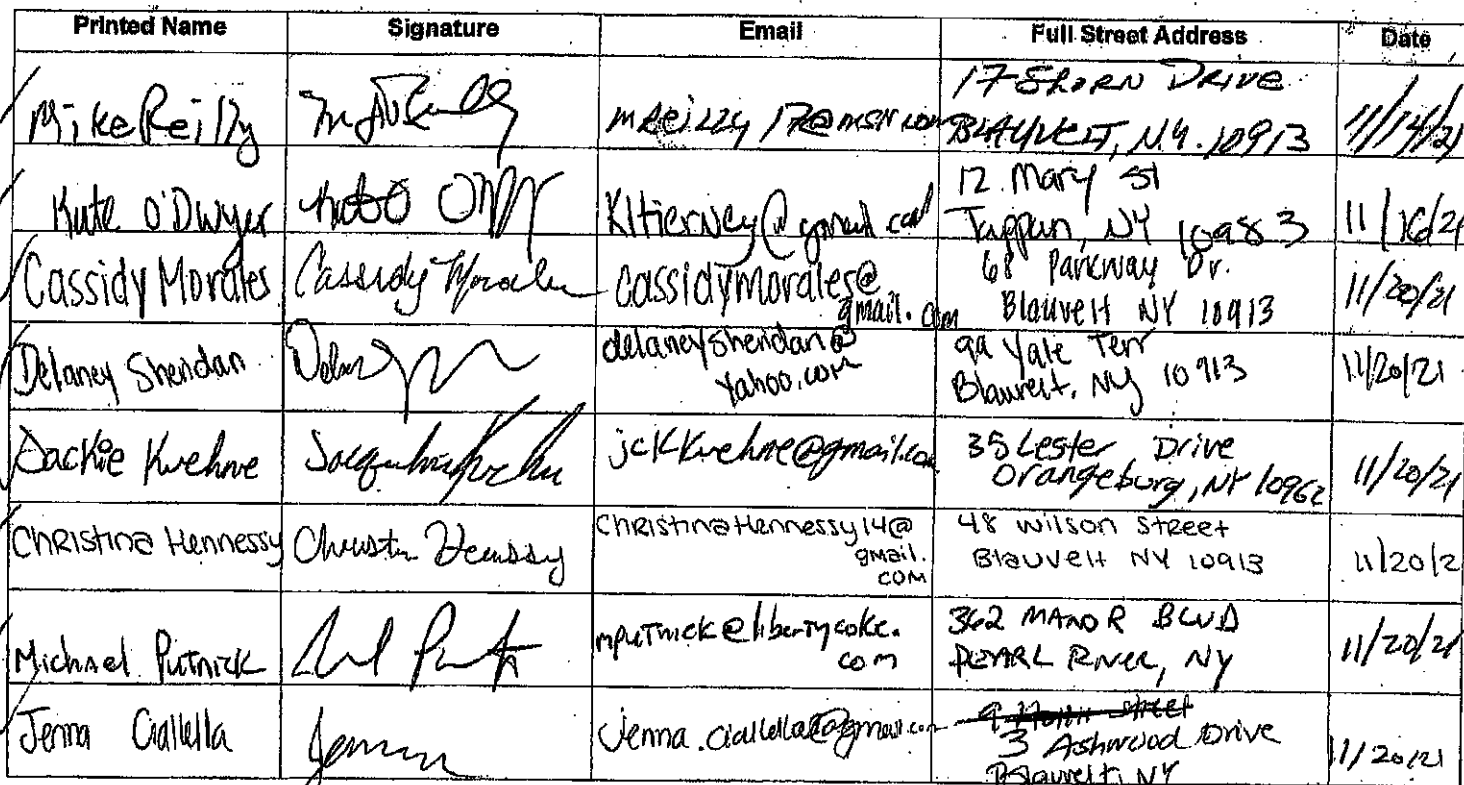 Printed Name Signature Email Full Street Address Date
Mike Reilly mReilly17@msn.com 17 DRIVE
BLAUVELT, N.Y. 10913 11/14/21
Kate O'Dwyer Kltierney@gmail.com 12 Mary St
Tappan, NY 10983 11/16/21
Cassidy Morales Cassidy Morales cassidymorales@
gmail.com 68 Parkway Dr.
Blauvelt NY 10913 11/20/21
Delaney Sheridan delaneysheridan@
yahoo.com 99 Yale Terr
Blauvelt, NY 10913 11/20/21
Jackie Kuehne jckkuehne@gmail.com 35 Lester Drive
Orangeburg, NY 10962 11/20/21
Christina Hennessy Christina Hennessy ChristinaHennessy14@
gmail.
com 48 Wilson Street
Blauvelt NY 10913 11/20/2
Michael Putnick mputnick@libertycoke.
com 362 MANOR BLVD
PEARL RIVER, NY 11/20/21
Jenna Ciallella Jenna jenna.ciallella@gmail.com Street
3 Ashwood Drive
Blauvelt, NY 11/20/21